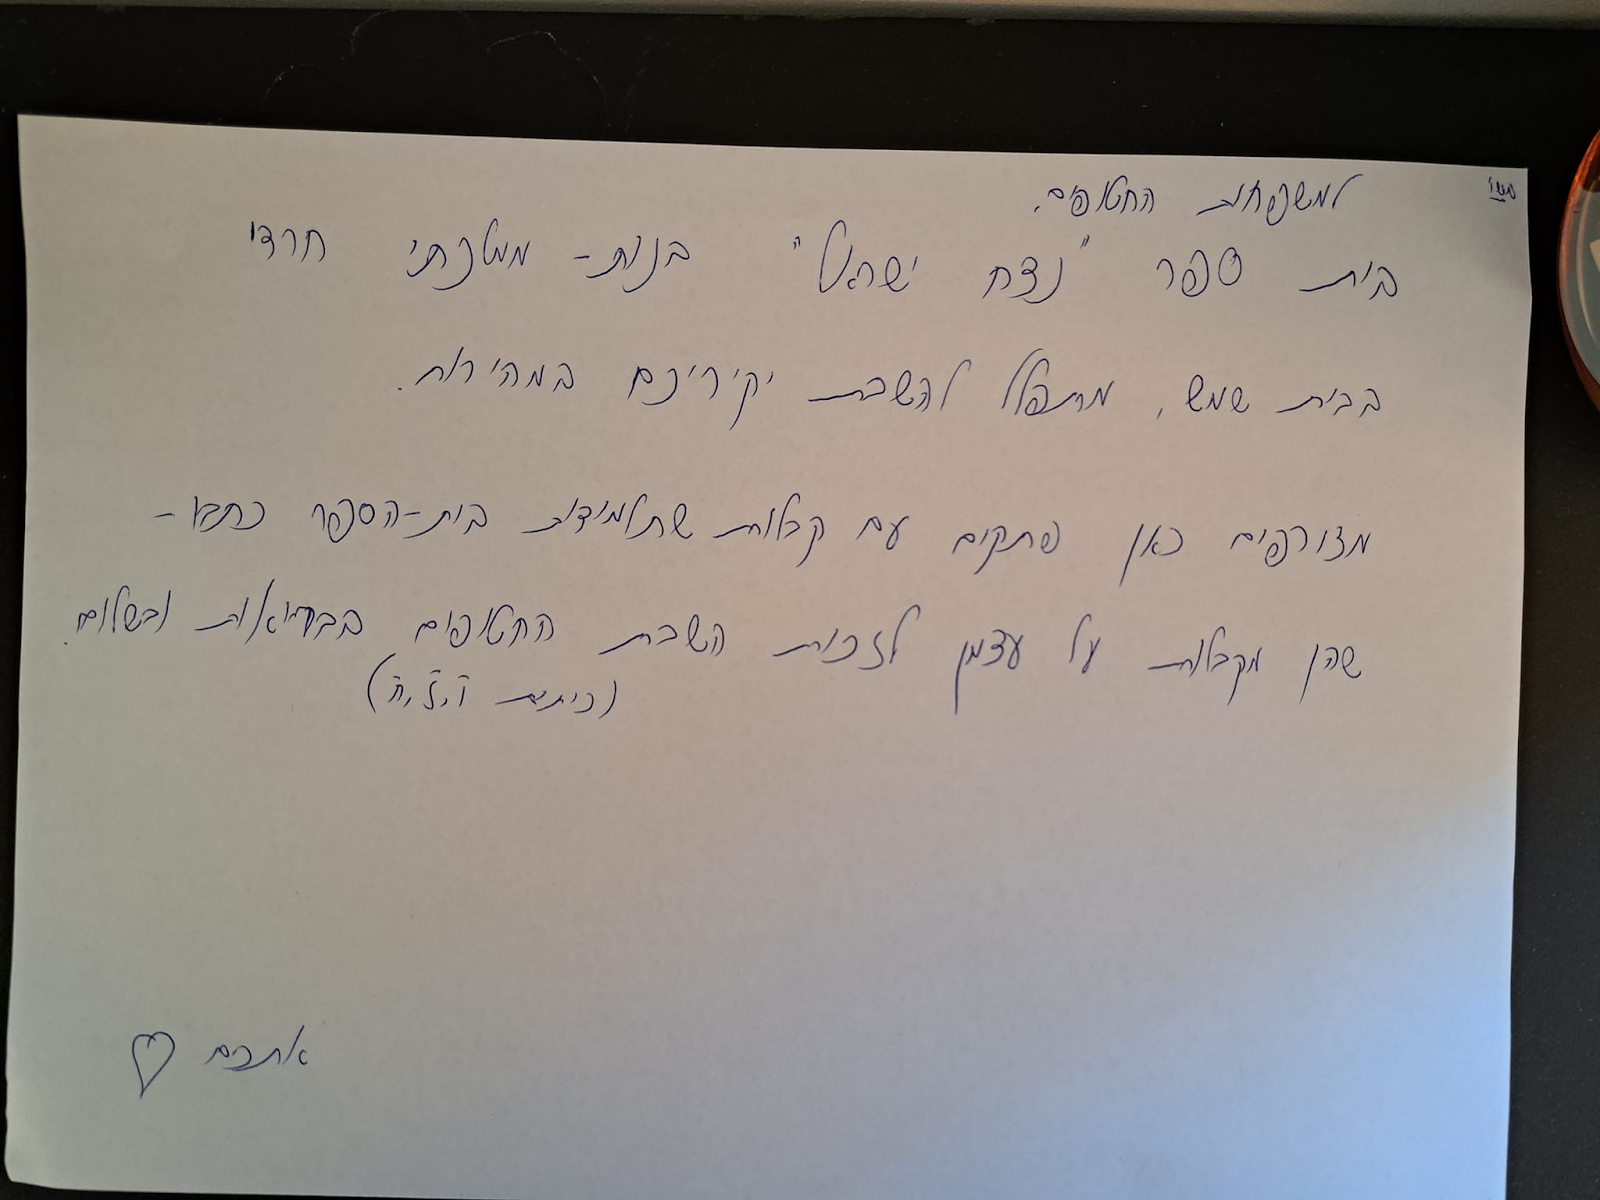 בסיו
למשפחות החטופים,
בית ספר "נצח ישראל" בנות - ממלכתי חרדי
בבית שמש, מתפלל להשבת יקיריכם במהירות.
מצורפים כאן פתקים עם קבלות שתלמידות בית-הספר כתבו -
שהן מקבלות על עצמן לזכות השבת החטופים בבריאות ובשלום.
(כיתות ו, ז, ח)
אתכם ♡